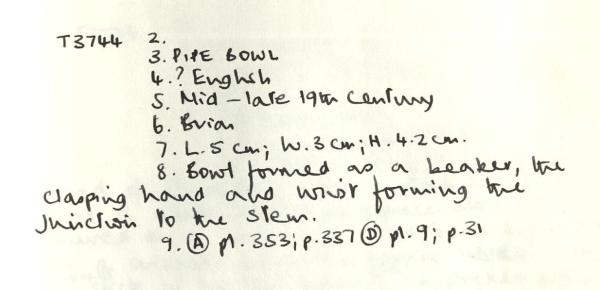 T3744 2.
3. PIPE BOWL
4. ? English
5. Mid - late 19th Century
6. Briar
7. L. 5 cm; W. 3 cm; H. 4.2 cm.
8. Bowl formed as a beaker, the
clasping hand and wrist forming the
junction to the stem.
9. Ⓐ pl. 353; p. 337 Ⓓ pl. 9; p. 31